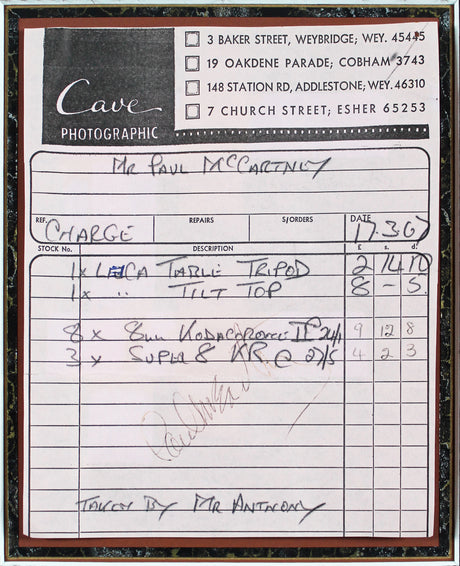 Cave
PHOTOGRAPHIC
3 BAKER STREET, WEYBRIDGE; WEY. 45445
19 OAKDENE PARADE; COBHAM 3743
148 STATION RD, ADDLESTONE; WEY. 46310
7 CHURCH STREET; ESHER 65253
MR PAUL MCCARTNEY
REF. CHARGE REPAIRS S/ORDERS DATE 17.3.67
STOCK No. DESCRIPTION £ s. d.
1 x LEICA TABLE TRIPOD 2 14 10
1 x " TILT TOP 8 - 5
8 x 8mm KODACHROME II @ 24/1 9 12 8
3 x SUPER 8 KR @ 27/5 4 2 3
TAKEN BY MR ANTHONY